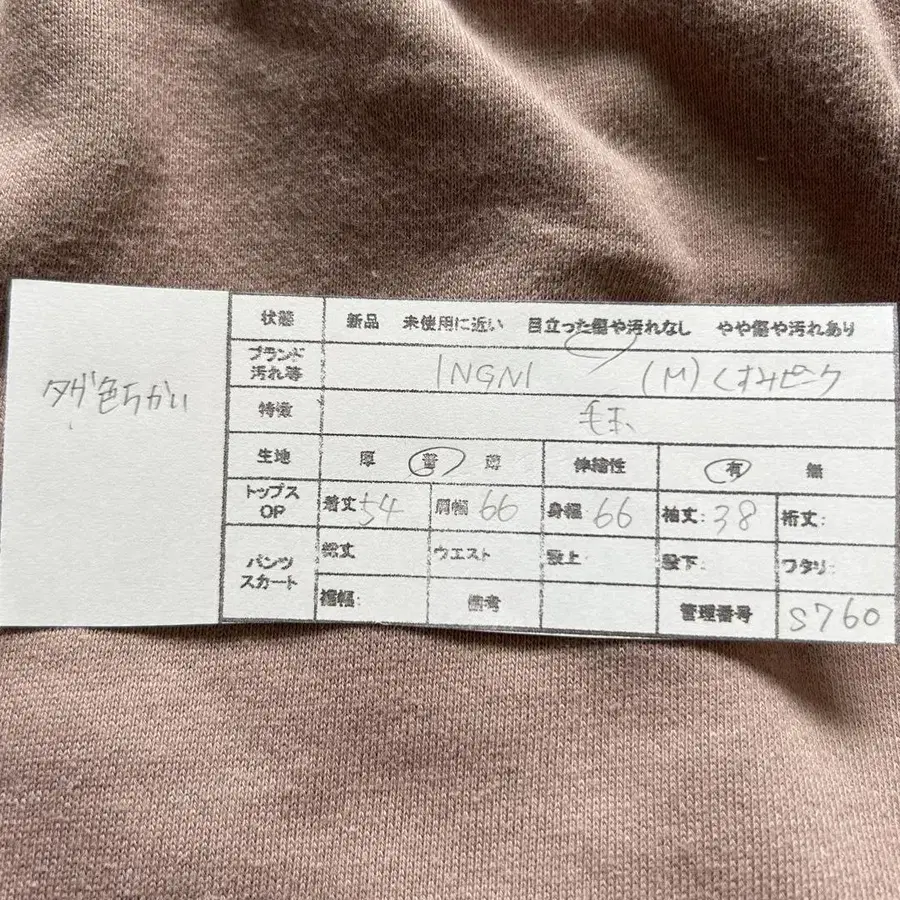 タグ色ちがい
状態 新品 未使用に近い 目立った傷や汚れなし やや傷や汚れあり
ブランド
汚れ等 INGNI (M) くすみピンク
特徴 毛玉
生地 厚 普 薄 伸縮性 有 無
トップス
OP 着丈 54 肩幅 66 身幅 66 袖丈: 38 裄丈:
パンツ
スカート 総丈 ウエスト 股上: 股下: ワタリ:
裾幅: 備考 管理番号 S760